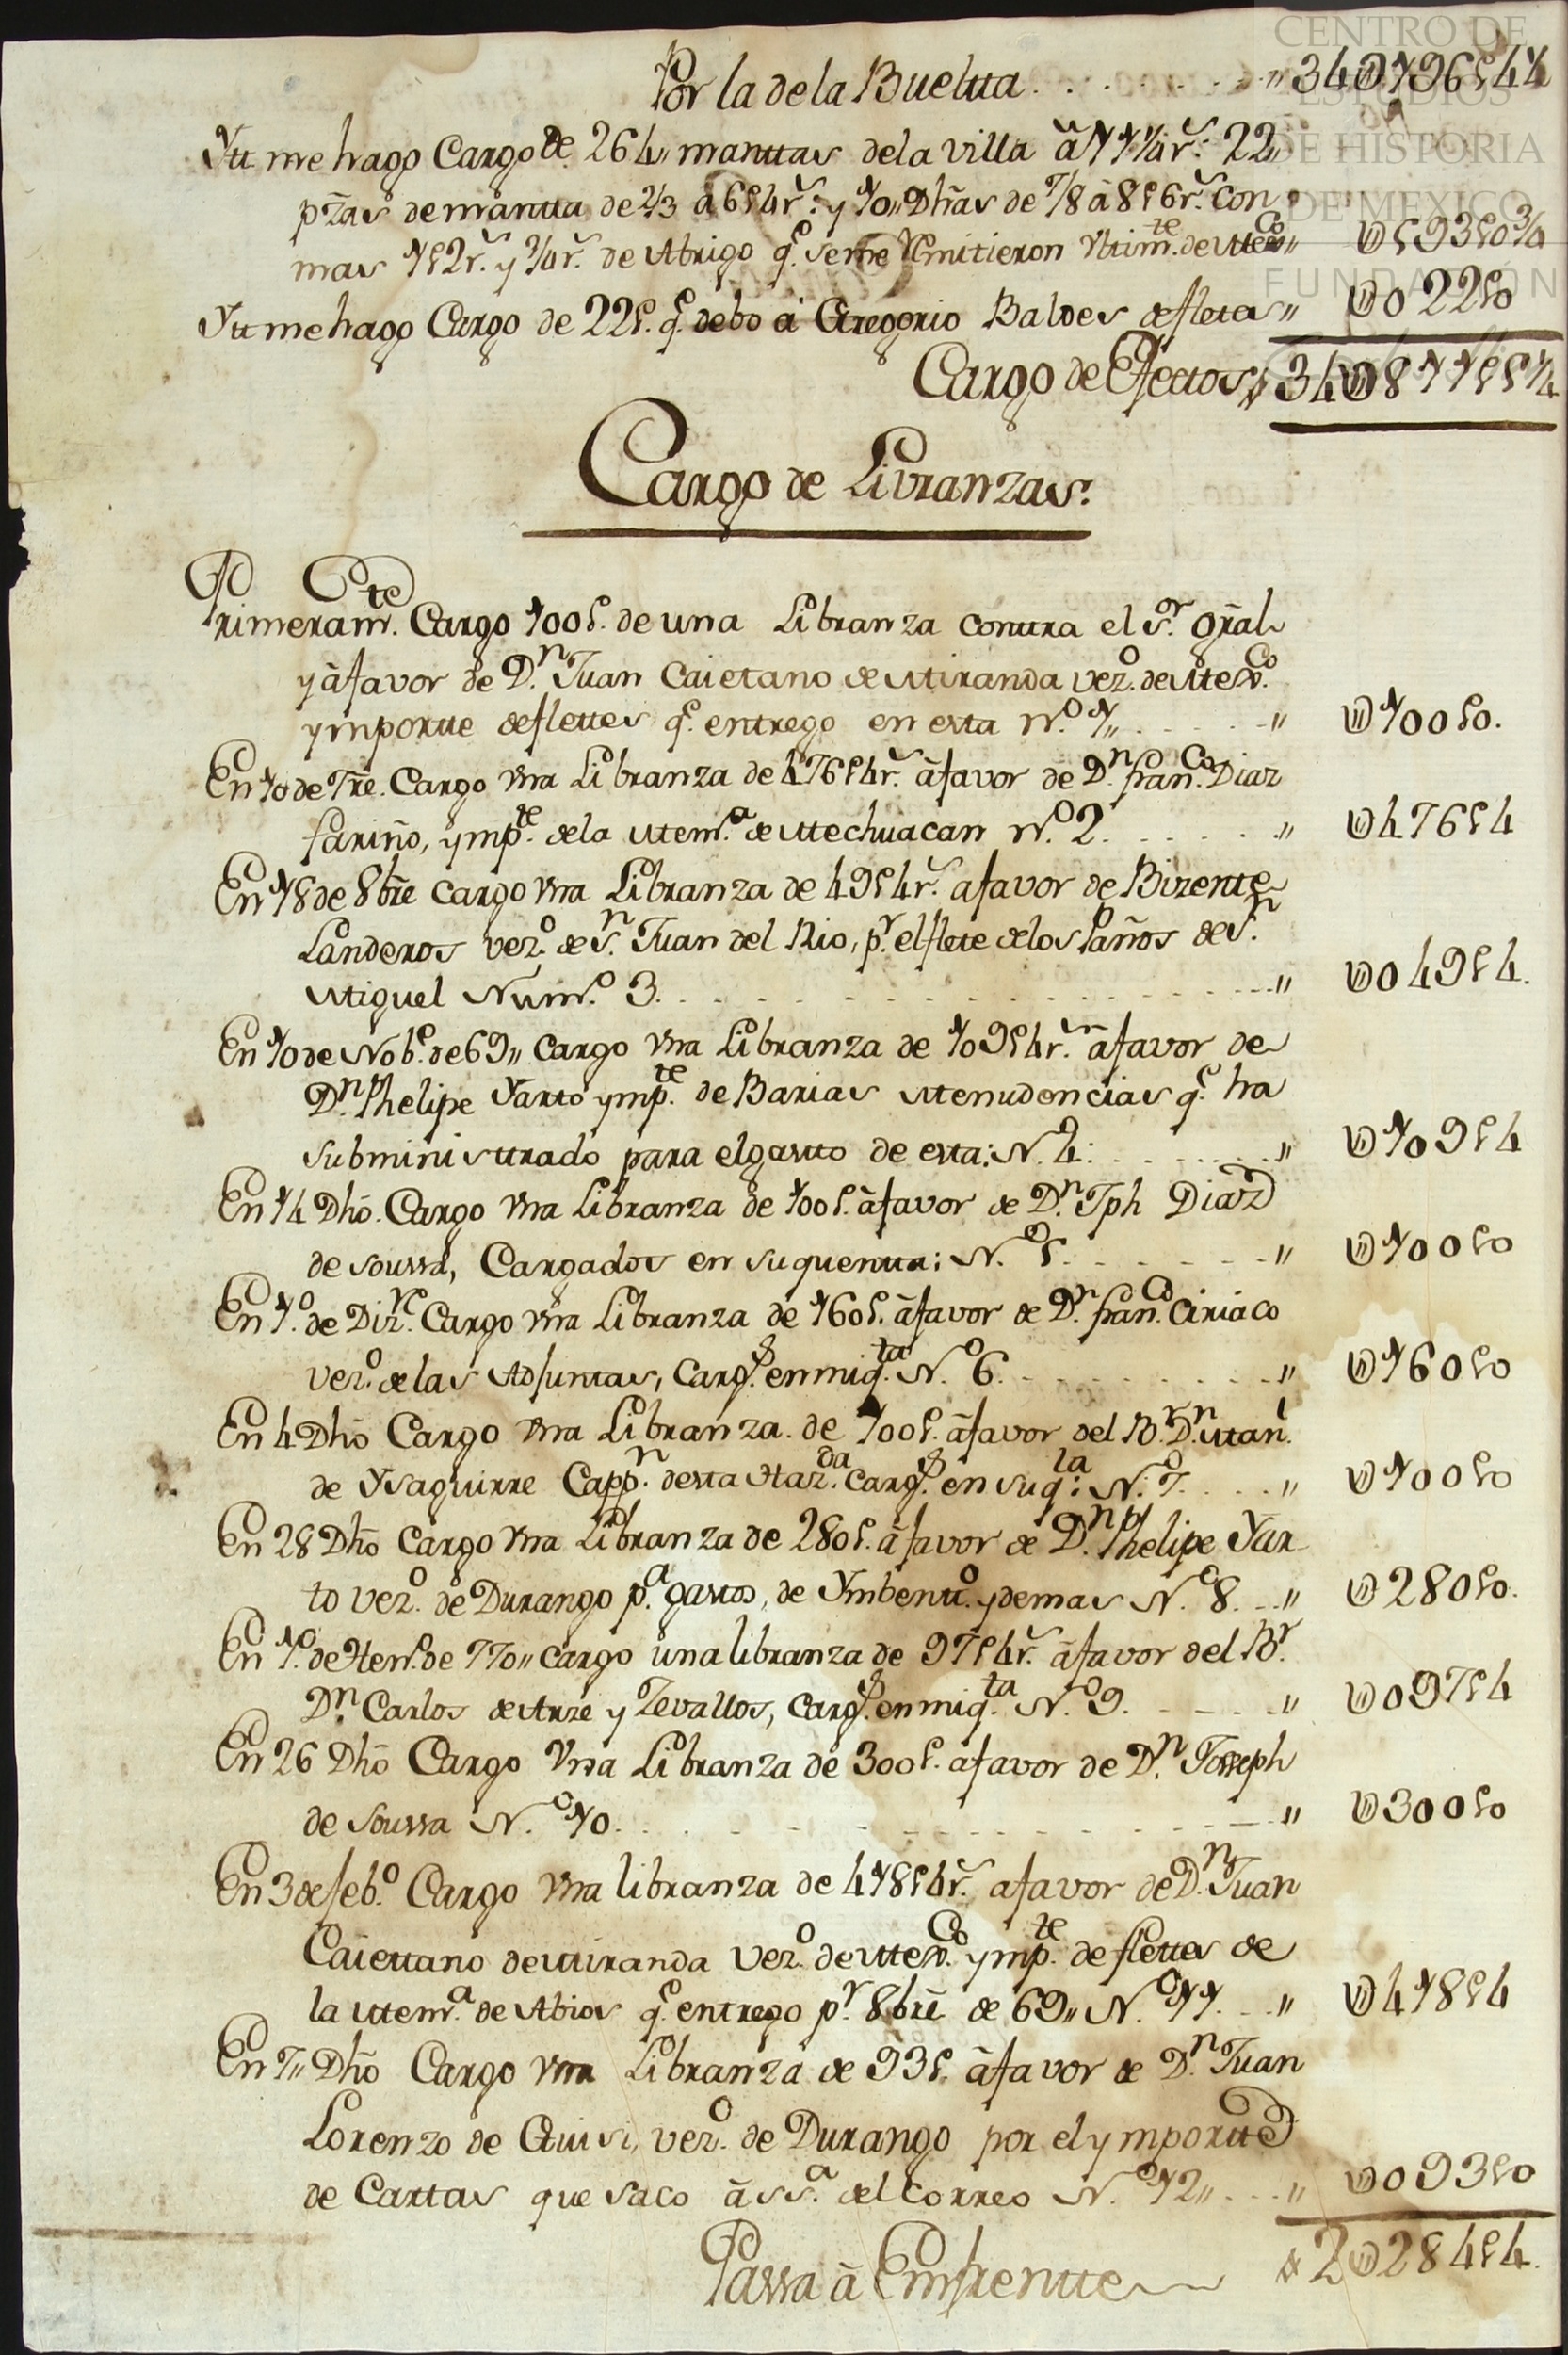 CENTRO DE
ESTUDIOS
DE HISTORIA
DE MEXICO
FUNDACIÓN
Por la de la Buelta . . . . . . . . " 34U196p4¼
Ytt me hago Cargo de 264,, manttas de la villa â 11¼ r.s 22,,
p.zas de mantta de 2/3 â 6p4 r.s y 10,, Dhãs de 7/8 â 8p6 r.s con
mas 1p2 r.s y ¾ r.s de Abrigo q.e se me Remitieron Vltim.te de Mex.co " Up593p0¾
Ytt me hago Cargo de 22p. q.e debo â Gregorio Baldes de fletes " U022p0
Cargo de Efectos,, 34U811p5¼
Cargo de Livranzas.
Primeram.te Cargo 100p. de una Libranza contra el S.r Gr̃al
y â favor de D.n Juan Caietano de Miranda vez.o de Mex.co
y mporte de flettes q.e entrego en esta N.o 1,, . . . . " U100p0.
En 10 de 7r̃e. Cargo vna Libranza de 476p4 r.s â favor de D.n fran.co Diaz
fariño, ymp.te de la Mem.a de Mechuacan N.o 2. . . . . . " U476p4
En 18 de 8bre cargo vna Libranza de 49p4 r.s a favor de Bizente
Landeros vez.o de S.n Juan del Rio, p.r el flete de los Paños de S.n
Miguel Num.o 3. . . . . . . . . . . . . " U049p4.
En 10 de Nob.e de 69,, Cargo vna Libranza de 109p4 r.s â favor de
D.n Phelipe Yarto ymp.te de Barias Menudencias q.e ha
subministtrado para el gastto de esta: N.o 4: . . . . . " U109p4
En 14 Dhõ. Cargo vna Libranza de 100p. â favor de D.n Jph Diaz
de soussa, Cargados en su quentta: N.o 5. . . . . . . " U100p0
En 1.o de Diz.re Cargo vna Libranza de 160p. â favor de D.n fran.co Ciriaco
vez.o de las Adjuntas, Carg.s en mi q.ta N.o 6. . . . . . . " U160p0
En 4 Dhõ Cargo vna Libranza. de 100p. â favor del B.r D.n Man.l
de Ysaguirre Capp.n de esta Haz.da carg.s en su q.ta: N.o 7. . . . " U100p0
En 28 Dhõ Cargo vna Libranza de 280p. â favor de D.n Phelipe Yar-
to vez.o de Durango p.a gastos, de Ymbentt.o y demas N.o 8. . . " U280p0.
En 1.o de Hen.o de 770,, cargo una libranza de 97p4 r.s â favor del B.r
D.n Carlos de Arze y Zevallos, carg.s en mi q.ta N.o 9. . . . . " U097p4
En 26 Dhõ Cargo Vna Libranza de 300p. a favor de D.n Josseph
de Soussa N.o 10. . . . . . . . . . . . . " U300p0
En 3 de feb.o Cargo vna libranza de 418p4 r.s a favor de D.n Juan
Caiettano de Miranda vez.o de Mex.co ymp.te de flettes de
la Mem.a de Abios q.e entrego p.r 8bre de 69,, N.o 11. . . " U418p4
En 7,, Dhõ Cargo vna Libranza de 93p. â favor de D.n Juan
Lorenzo de Quisi, vez.o de Durango por el ymportte
de Cartas que saco â ss.a del Correo N.o 12,, . . . " U093p0
Passa â Emfrentte 2U284p4.